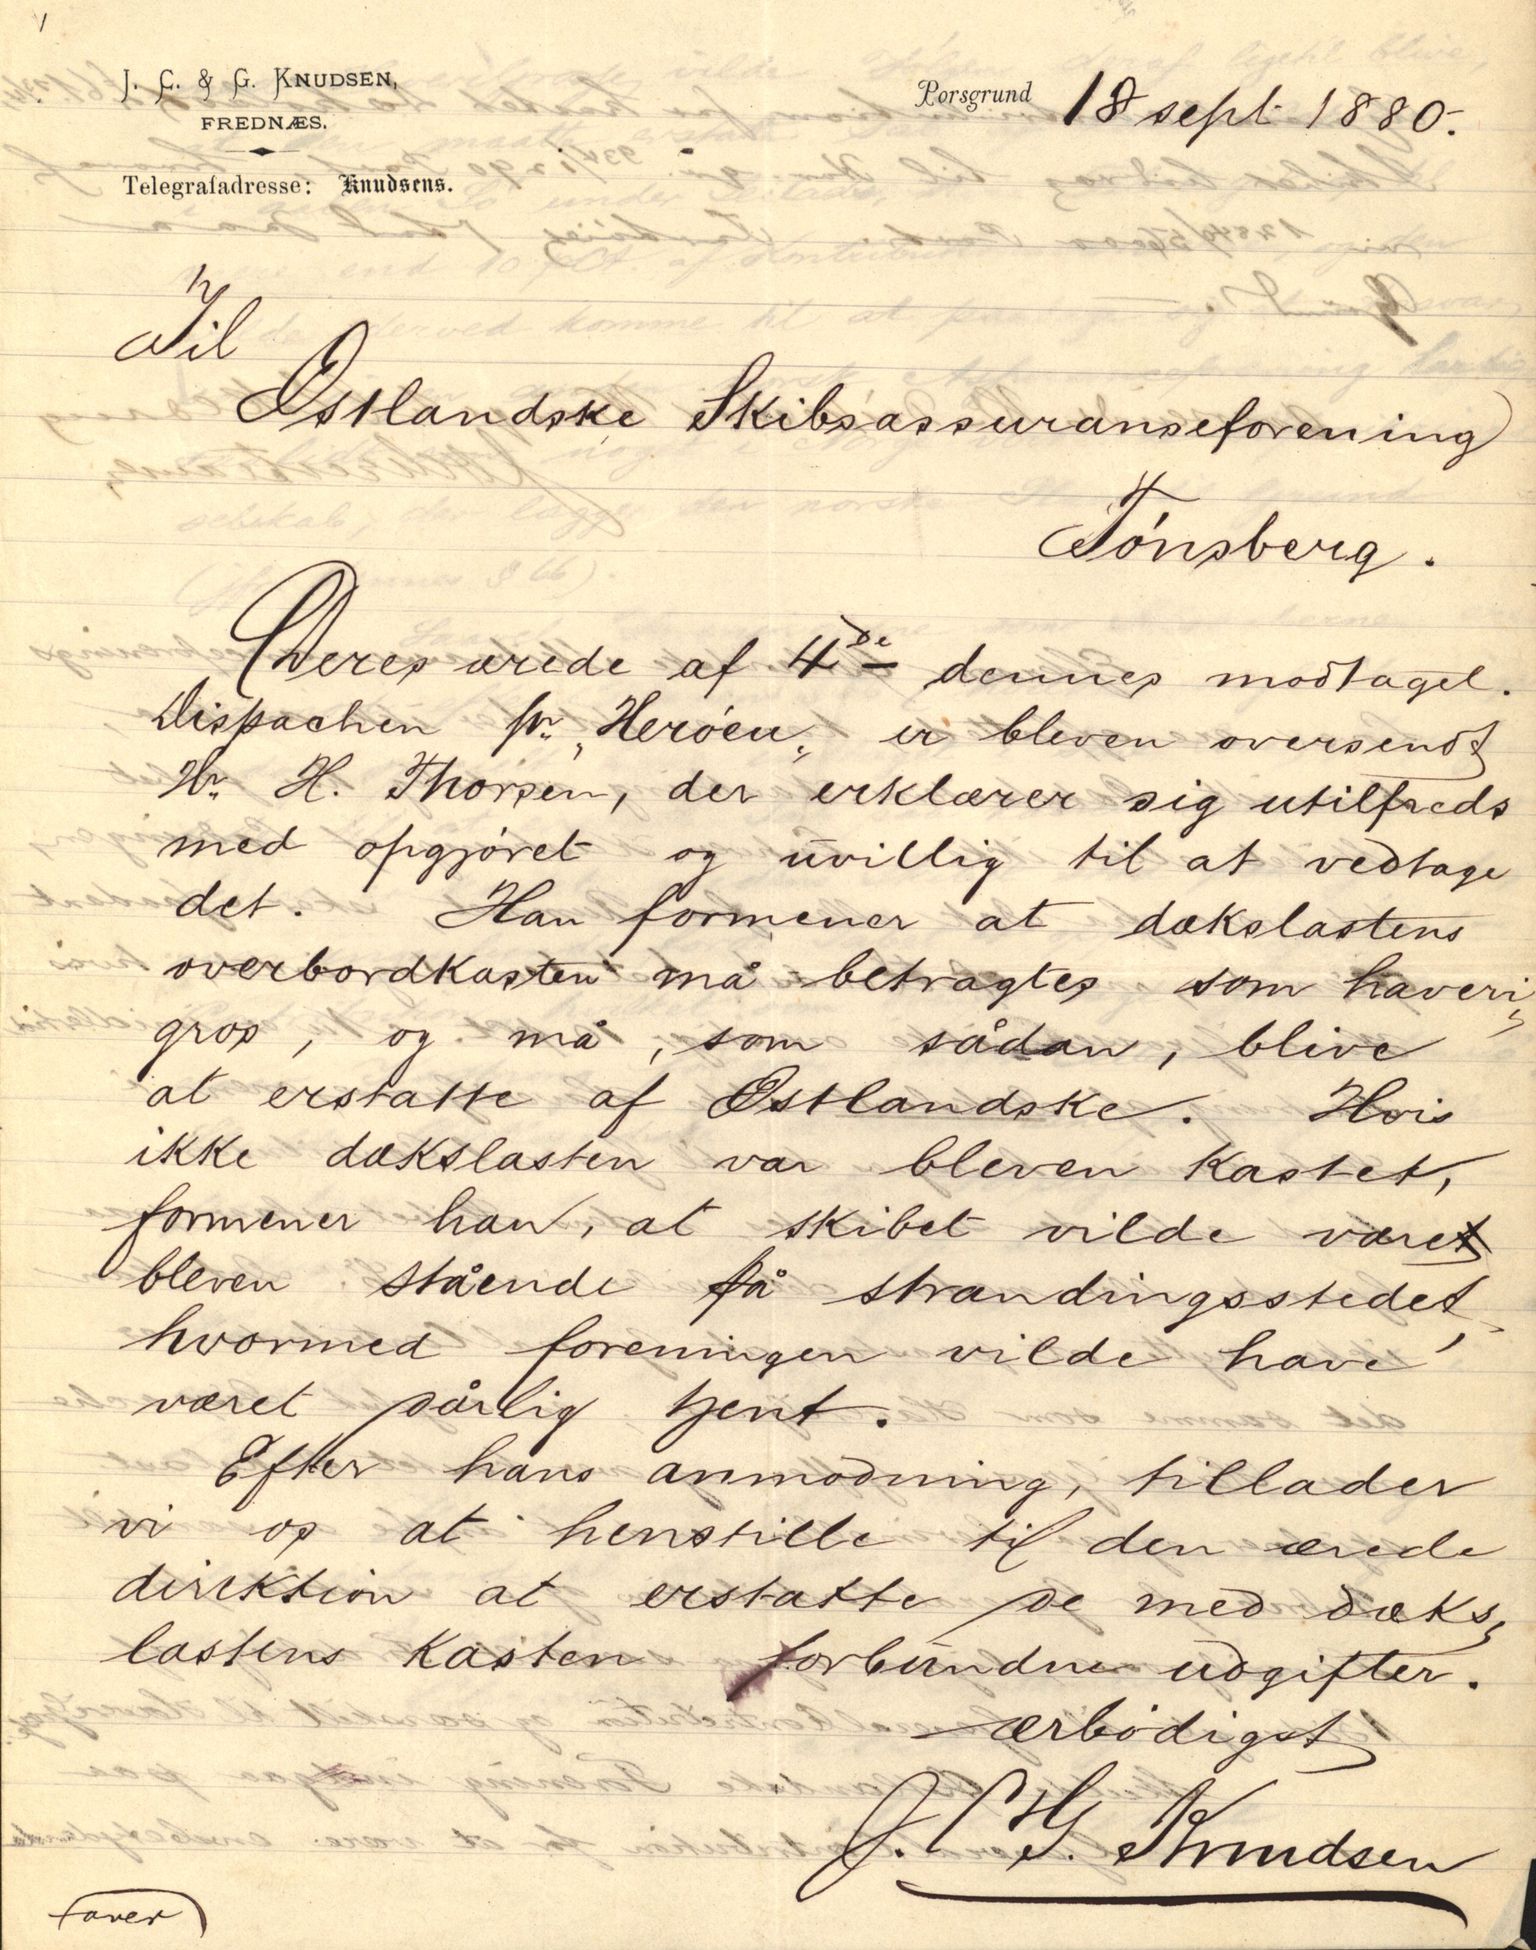 J. C. & G. KNUDSEN,
FREDNÆS.
Telegrafadresse: Knudsens.
Porsgrund 18 sept 1880.
Til
Østlandske Skibsassuranseforening
Tönsberg.
Deres ærede af 4de dennes modtaget.
Dispachen pr. „Heröen„ er bleven oversendt
Hr. H. Thorsen, der erklærer sig utilfreds
med opgjøret og uvillig til at vedtage
det. Han formener at dækslastens
overbordkasten må betragtes som haveri
gros, og må, som sådan, blive
at erstatte af Østlandske. Hvis
ikke dækslasten var bleven kastet,
formener han, at skibet vilde været
bleven stående på strandingsstedet,
hvormed foreningen vilde have
været dårlig tjent.
Efter hans anmodning, tillader
vi os at henstille til den ærede
direktion at erstatte de med dæks
lastens kasten forbundne udgifter.
ærbödigst
J. C & G. Knudsen